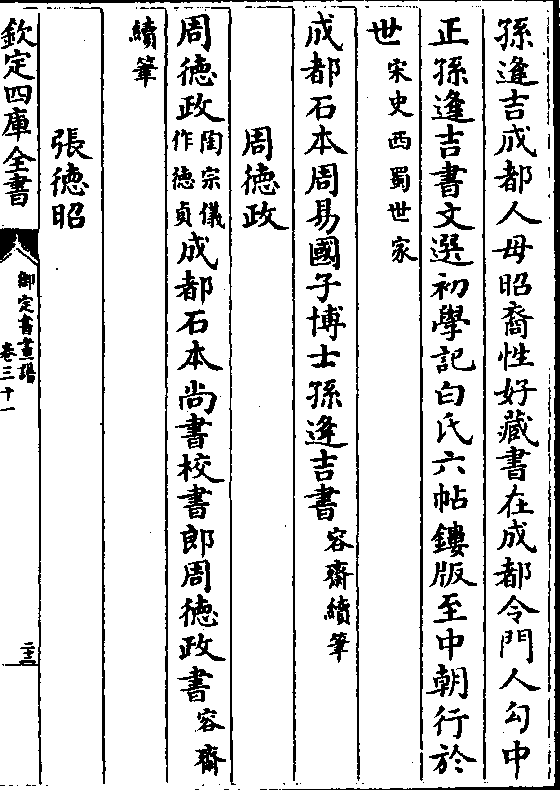 孫逢吉成都人毋昭裔性好藏書在成都令門人勾中
正孫逢吉書文選初學記白氏六帖鏤版至中朝行於
世宋史西蜀世家
成都石本周易國子博士孫逢吉書容齋續筆
周德政
周德政陶宗儀作德貞成都石本尚書校書郎周德政書容齋
續筆
張德昭
欽定四庫全書
御定書畫譜
卷三十一
二十三